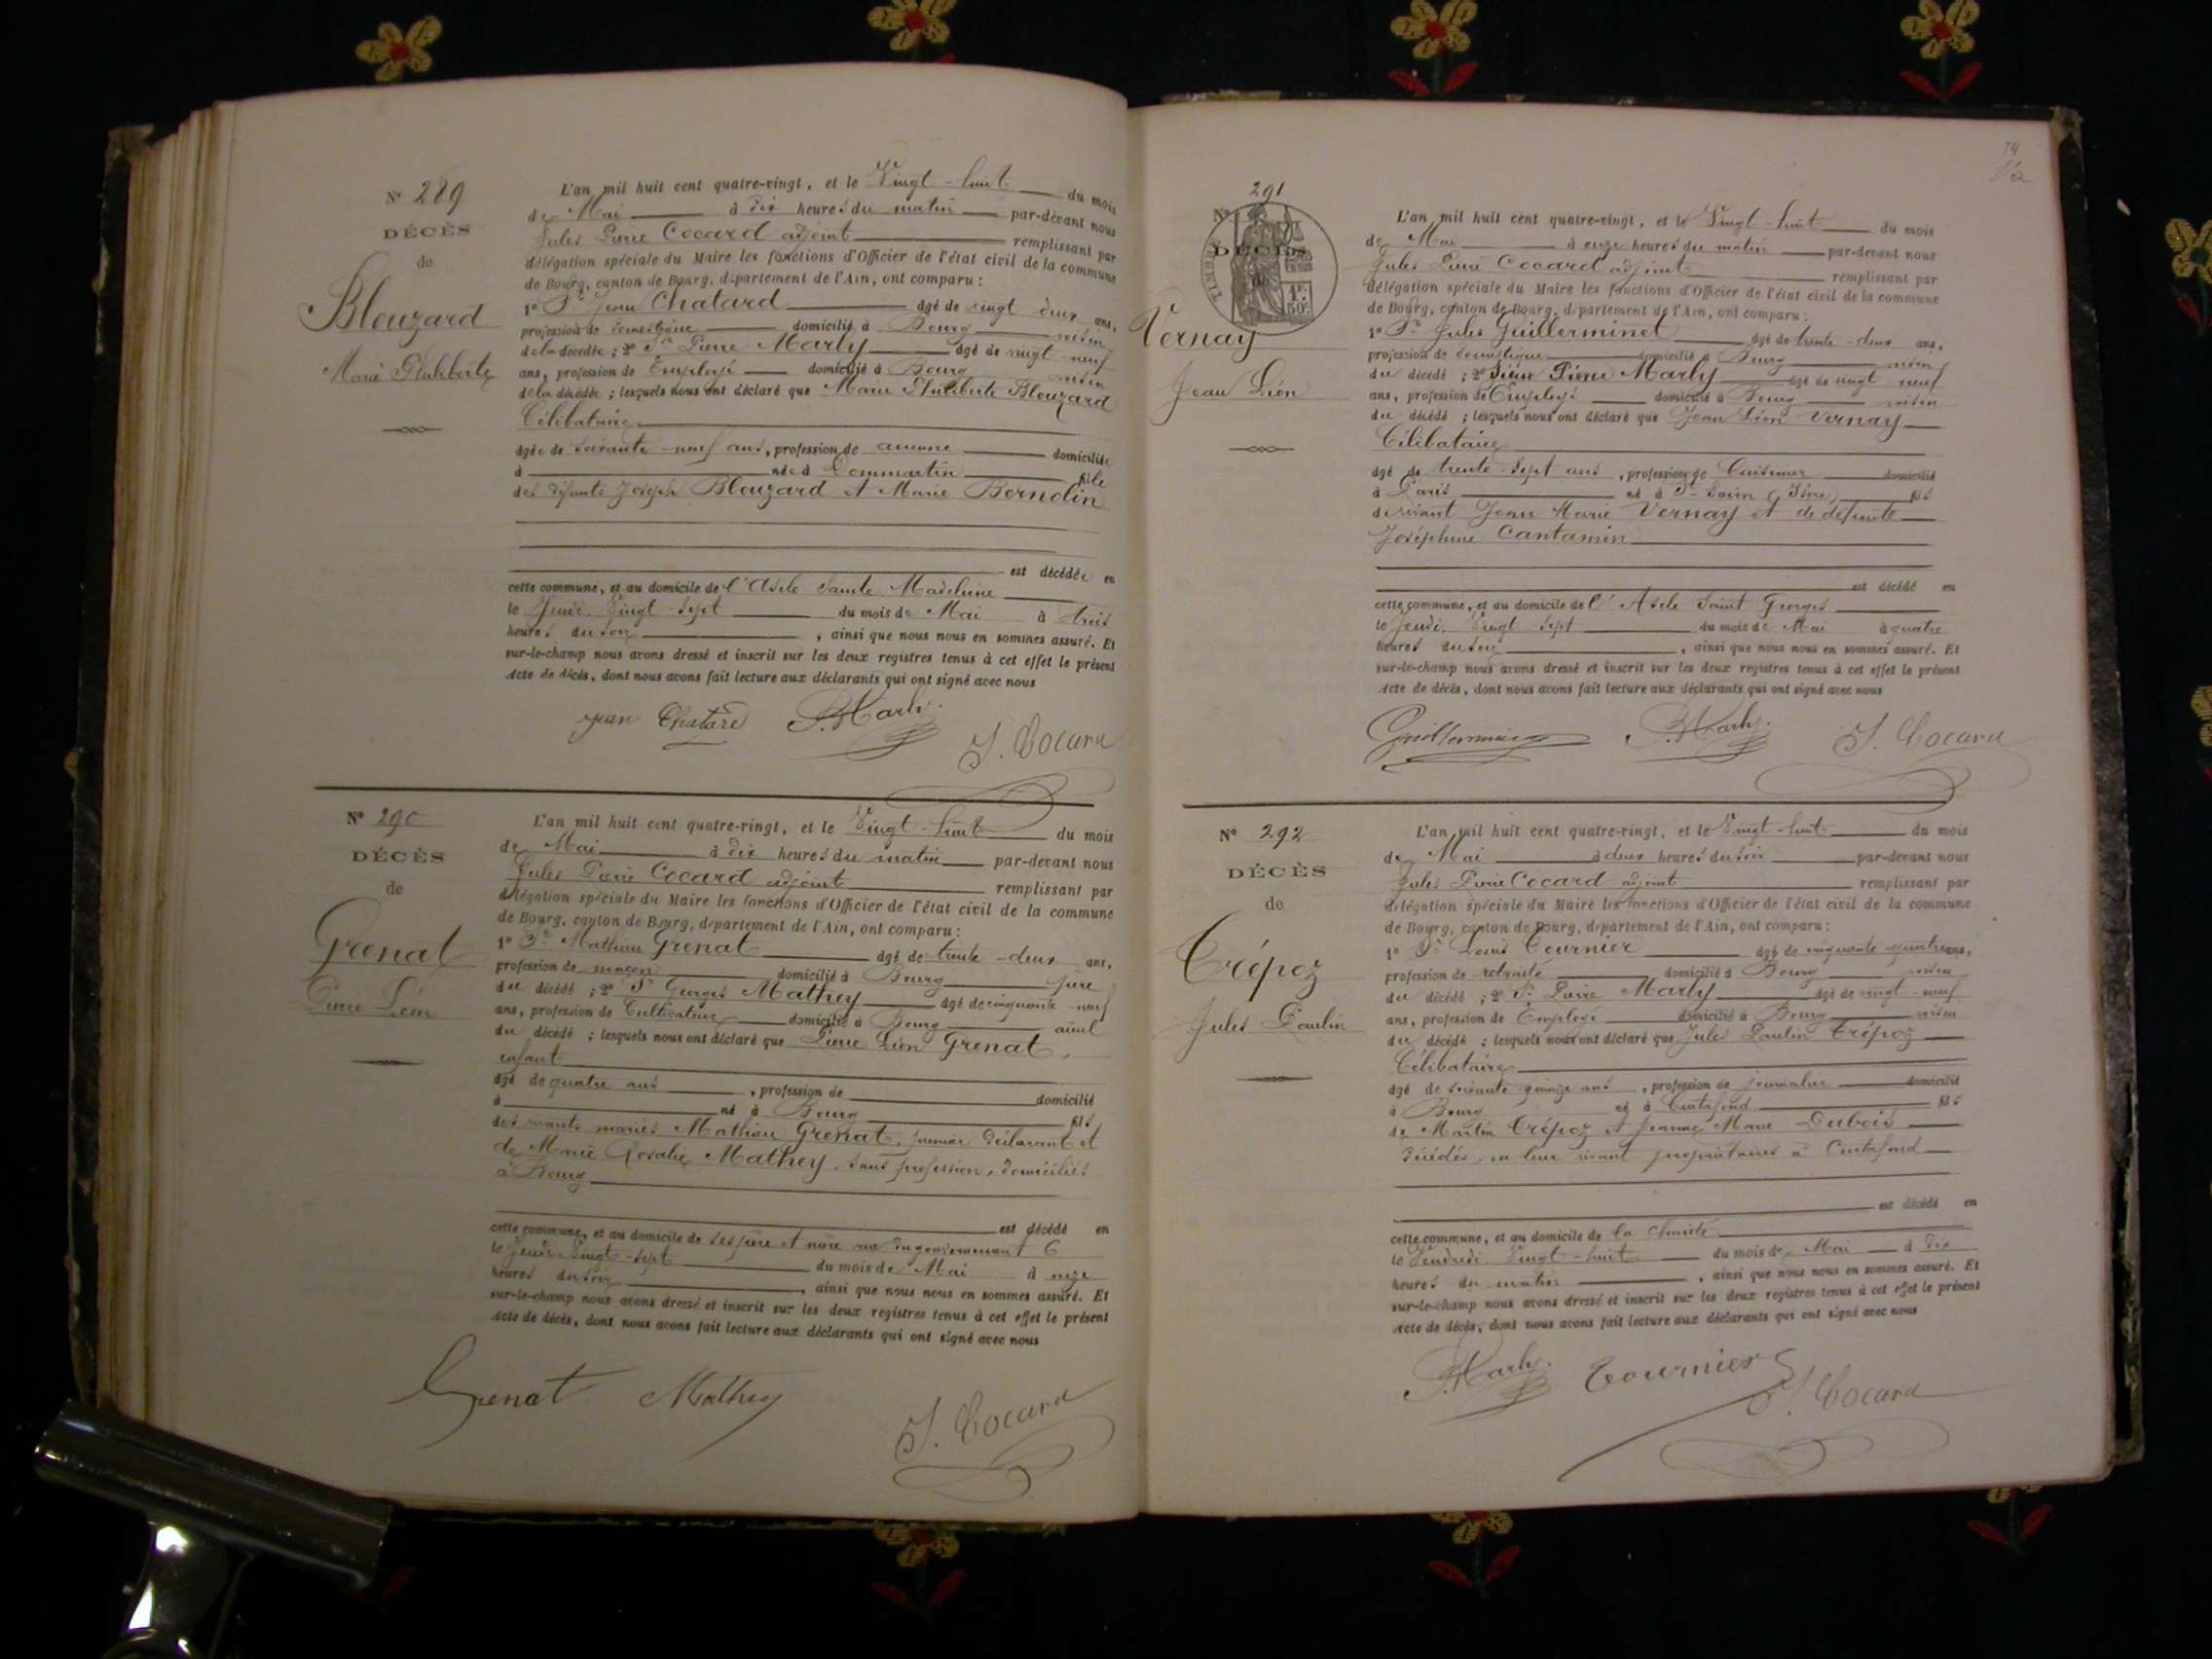 N° 289
DÉCÈS
de
Blouzard
Marie Philiberte
L'an mil huit cent quatre-vingt, et le Vingt-huit du mois
de Mai à dix heures du matin par-devant nous
Jules Pierre Cocard adjoint remplissant par
délégation spéciale du Maire les fonctions d'Officier de l'état civil de la commune
de Bourg, canton de Bourg, département de l'Ain, ont comparu :
1° Sr Jean Chatard âgé de vingt deux ans,
profession de domestique domicilié à Bourg voisin
de la décédée ; 2° Sr Pierre Marly âgé de vingt-neuf
ans, profession de Employé domicilié à Bourg voisin
de la décédée ; lesquels nous ont déclaré que Marie Philiberte Blouzard
Célibataire
âgée de soixante-neuf ans, profession de aucune domiciliée
à née à Dommartin fille
des défunts Joseph Blouzard et Marie Bernolin
est décédée en
cette commune, et au domicile de l'Asile Sainte Madeleine
le Jeudi Vingt-sept du mois de Mai à trois
heures du soir, ainsi que nous nous en sommes assuré. Et
sur-le-champ nous avons dressé et inscrit sur les deux registres tenus à cet effet le présent
Acte de décès, dont nous avons fait lecture aux déclarants qui ont signé avec nous
Jean Chatard P. Marly J. Cocard
N° 290
DÉCÈS
de
Grenat
Pierre Léon
L'an mil huit cent quatre-vingt, et le Vingt-huit du mois
de Mai à dix heures du matin par-devant nous
Jules Pierre Cocard adjoint remplissant par
délégation spéciale du Maire les fonctions d'Officier de l'état civil de la commune
de Bourg, canton de Bourg, département de l'Ain, ont comparu :
1° Sr Mathieu Grenat âgé de trente-deux ans,
profession de maçon domicilié à Bourg père
du décédé ; 2° Sr Georges Mathey âgé de cinquante-neuf
ans, profession de Cultivateur domicilié à Bourg aïeul
du décédé ; lesquels nous ont déclaré que Pierre Léon Grenat,
enfant
âgé de quatre ans, profession de domicilié
à né à Bourg fils
des vivants mariés Mathieu Grenat, premier déclarant et
de Marie Rosalie Mathey, sans profession, domiciliés
à Bourg
est décédé en
cette commune, et au domicile de ses père et mère rue du gouvernement 6
le Jeudi Vingt-sept du mois de Mai à onze
heures du soir, ainsi que nous nous en sommes assuré. Et
sur-le-champ nous avons dressé et inscrit sur les deux registres tenus à cet effet le présent
Acte de décès, dont nous avons fait lecture aux déclarants qui ont signé avec nous
Grenat Mathey J. Cocard
74
N° 291
DÉCÈS
TIMBRE
1F
50c
Vernay
Jean Léon
L'an mil huit cent quatre-vingt, et le Vingt-huit du mois
de Mai à onze heures du matin par-devant nous
Jules Pierre Cocard adjoint remplissant par
délégation spéciale du Maire les fonctions d'Officier de l'état civil de la commune
de Bourg, canton de Bourg, département de l'Ain, ont comparu :
1° Sr Jules Guillerminet âgé de trente-deux ans,
profession de domestique domicilié à Bourg voisin
du décédé ; 2° Sieur Pierre Marly âgé de vingt neuf
ans, profession de Employé domicilié à Bourg voisin
du décédé ; lesquels nous ont déclaré que Jean Léon Vernay
Célibataire
âgé de trente-sept ans, profession de Cuisinier domicilié
à Paris né à St (Isère) fils
de vivant Jean Marie Vernay et de défunte
Joséphine Cantamin
est décédé en
cette commune, et au domicile de l'Asile Saint Georges
le Jeudi, Vingt-sept du mois de Mai à quatre
heures du soir, ainsi que nous nous en sommes assuré. Et
sur-le-champ nous avons dressé et inscrit sur les deux registres tenus à cet effet le présent
Acte de décès, dont nous avons fait lecture aux déclarants qui ont signé avec nous
Guillerminet P. Marly J. Cocard
N° 292
DÉCÈS
de
Trépoz
Jules Paulin
L'an mil huit cent quatre-vingt, et le Vingt-huit du mois
de Mai à deux heures du soir par-devant nous
Jules Pierre Cocard adjoint remplissant par
délégation spéciale du Maire les fonctions d'Officier de l'état civil de la commune
de Bourg, canton de Bourg, département de l'Ain, ont comparu :
1° Sr Louis Tournier âgé de cinquante quatre ans,
profession de retraité domicilié à Bourg voisin
du décédé ; 2° Sr Pierre Marly âgé de vingt-neuf
ans, profession de Employé domicilié à Bourg voisin
du décédé ; lesquels nous ont déclaré que Jules Paulin Trépoz
Célibataire
âgé de soixante quinze ans, profession de journalier domicilié
à Bourg né à Curtafond fils
de Martin Trépoz et Jeanne Marie Dubois
décédés, en leur vivant propriétaires à Curtafond
est décédé en
cette commune, et au domicile de la Charité
le Vendredi Vingt-huit du mois de Mai à dix
heures du matin, ainsi que nous nous en sommes assuré. Et
sur-le-champ nous avons dressé et inscrit sur les deux registres tenus à cet effet le présent
Acte de décès, dont nous avons fait lecture aux déclarants qui ont signé avec nous
P. Marly Tournier J. Cocard